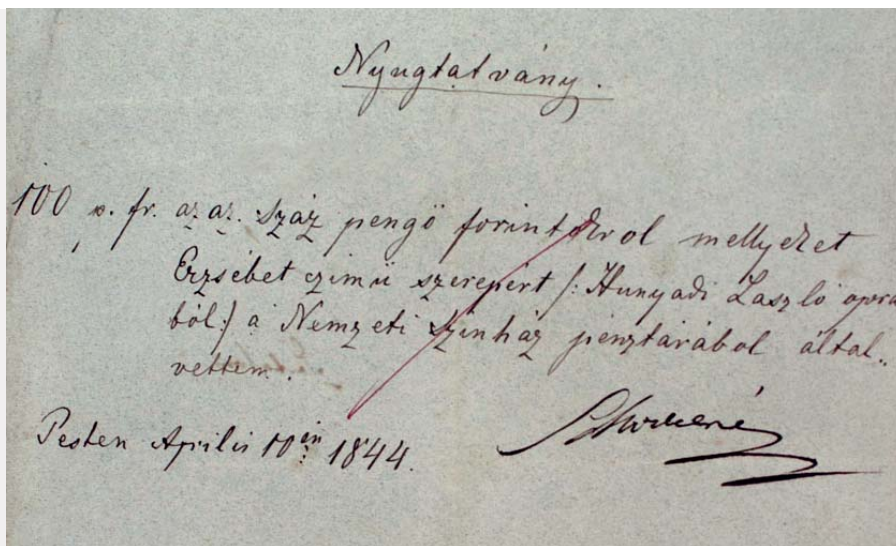 Nyugtatvány.
100 p. fr. azaz. száz pengő forintokrol mellyeket
Erzsébet czimü szerepért /: Hunyadi László opra
ból :/ a Nemzeti Szinház pénztárából által„
vettem.
Pesten Április 10én 1844.